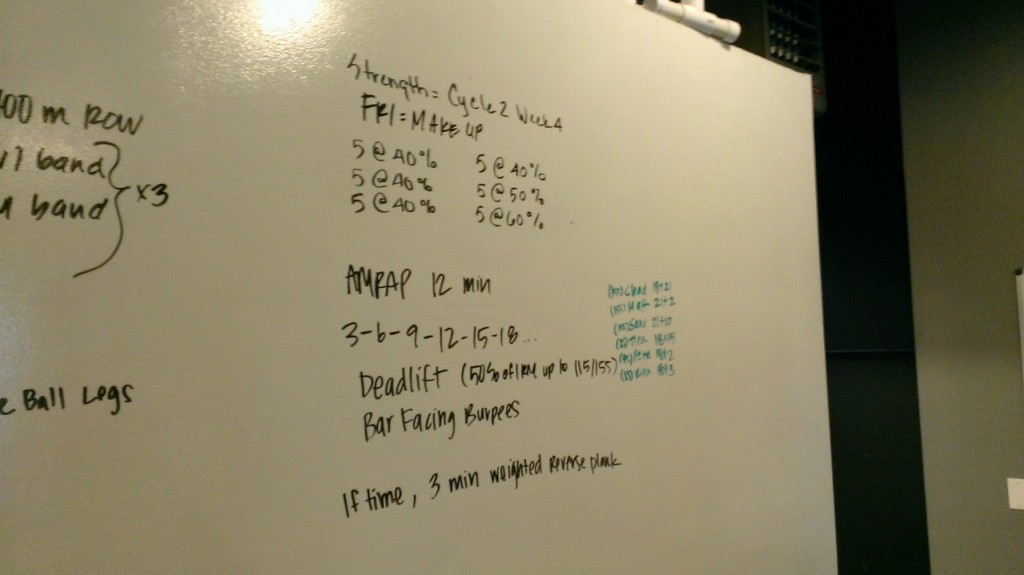 00 m Row
band
band
x3
Ball Legs
Strength = Cycle 2 Week 4
FRI = MAKE UP
5 @ 40% 5 @ 40%
5 @ 40% 5 @ 50%
5 @ 40% 5 @ 60%
AMRAP 12 min
3-6-9-12-15-18...
Deadlift (50% of 1RM up to 115/155)
Bar Facing Burpees
If time, 3 min weighted reverse plank
Chad 18+21
Matt 21+2